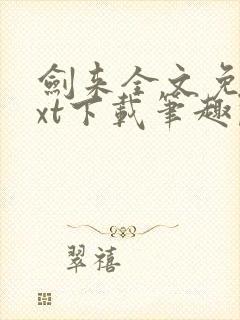 劍来全文免
xt下載筆趣
翠禧